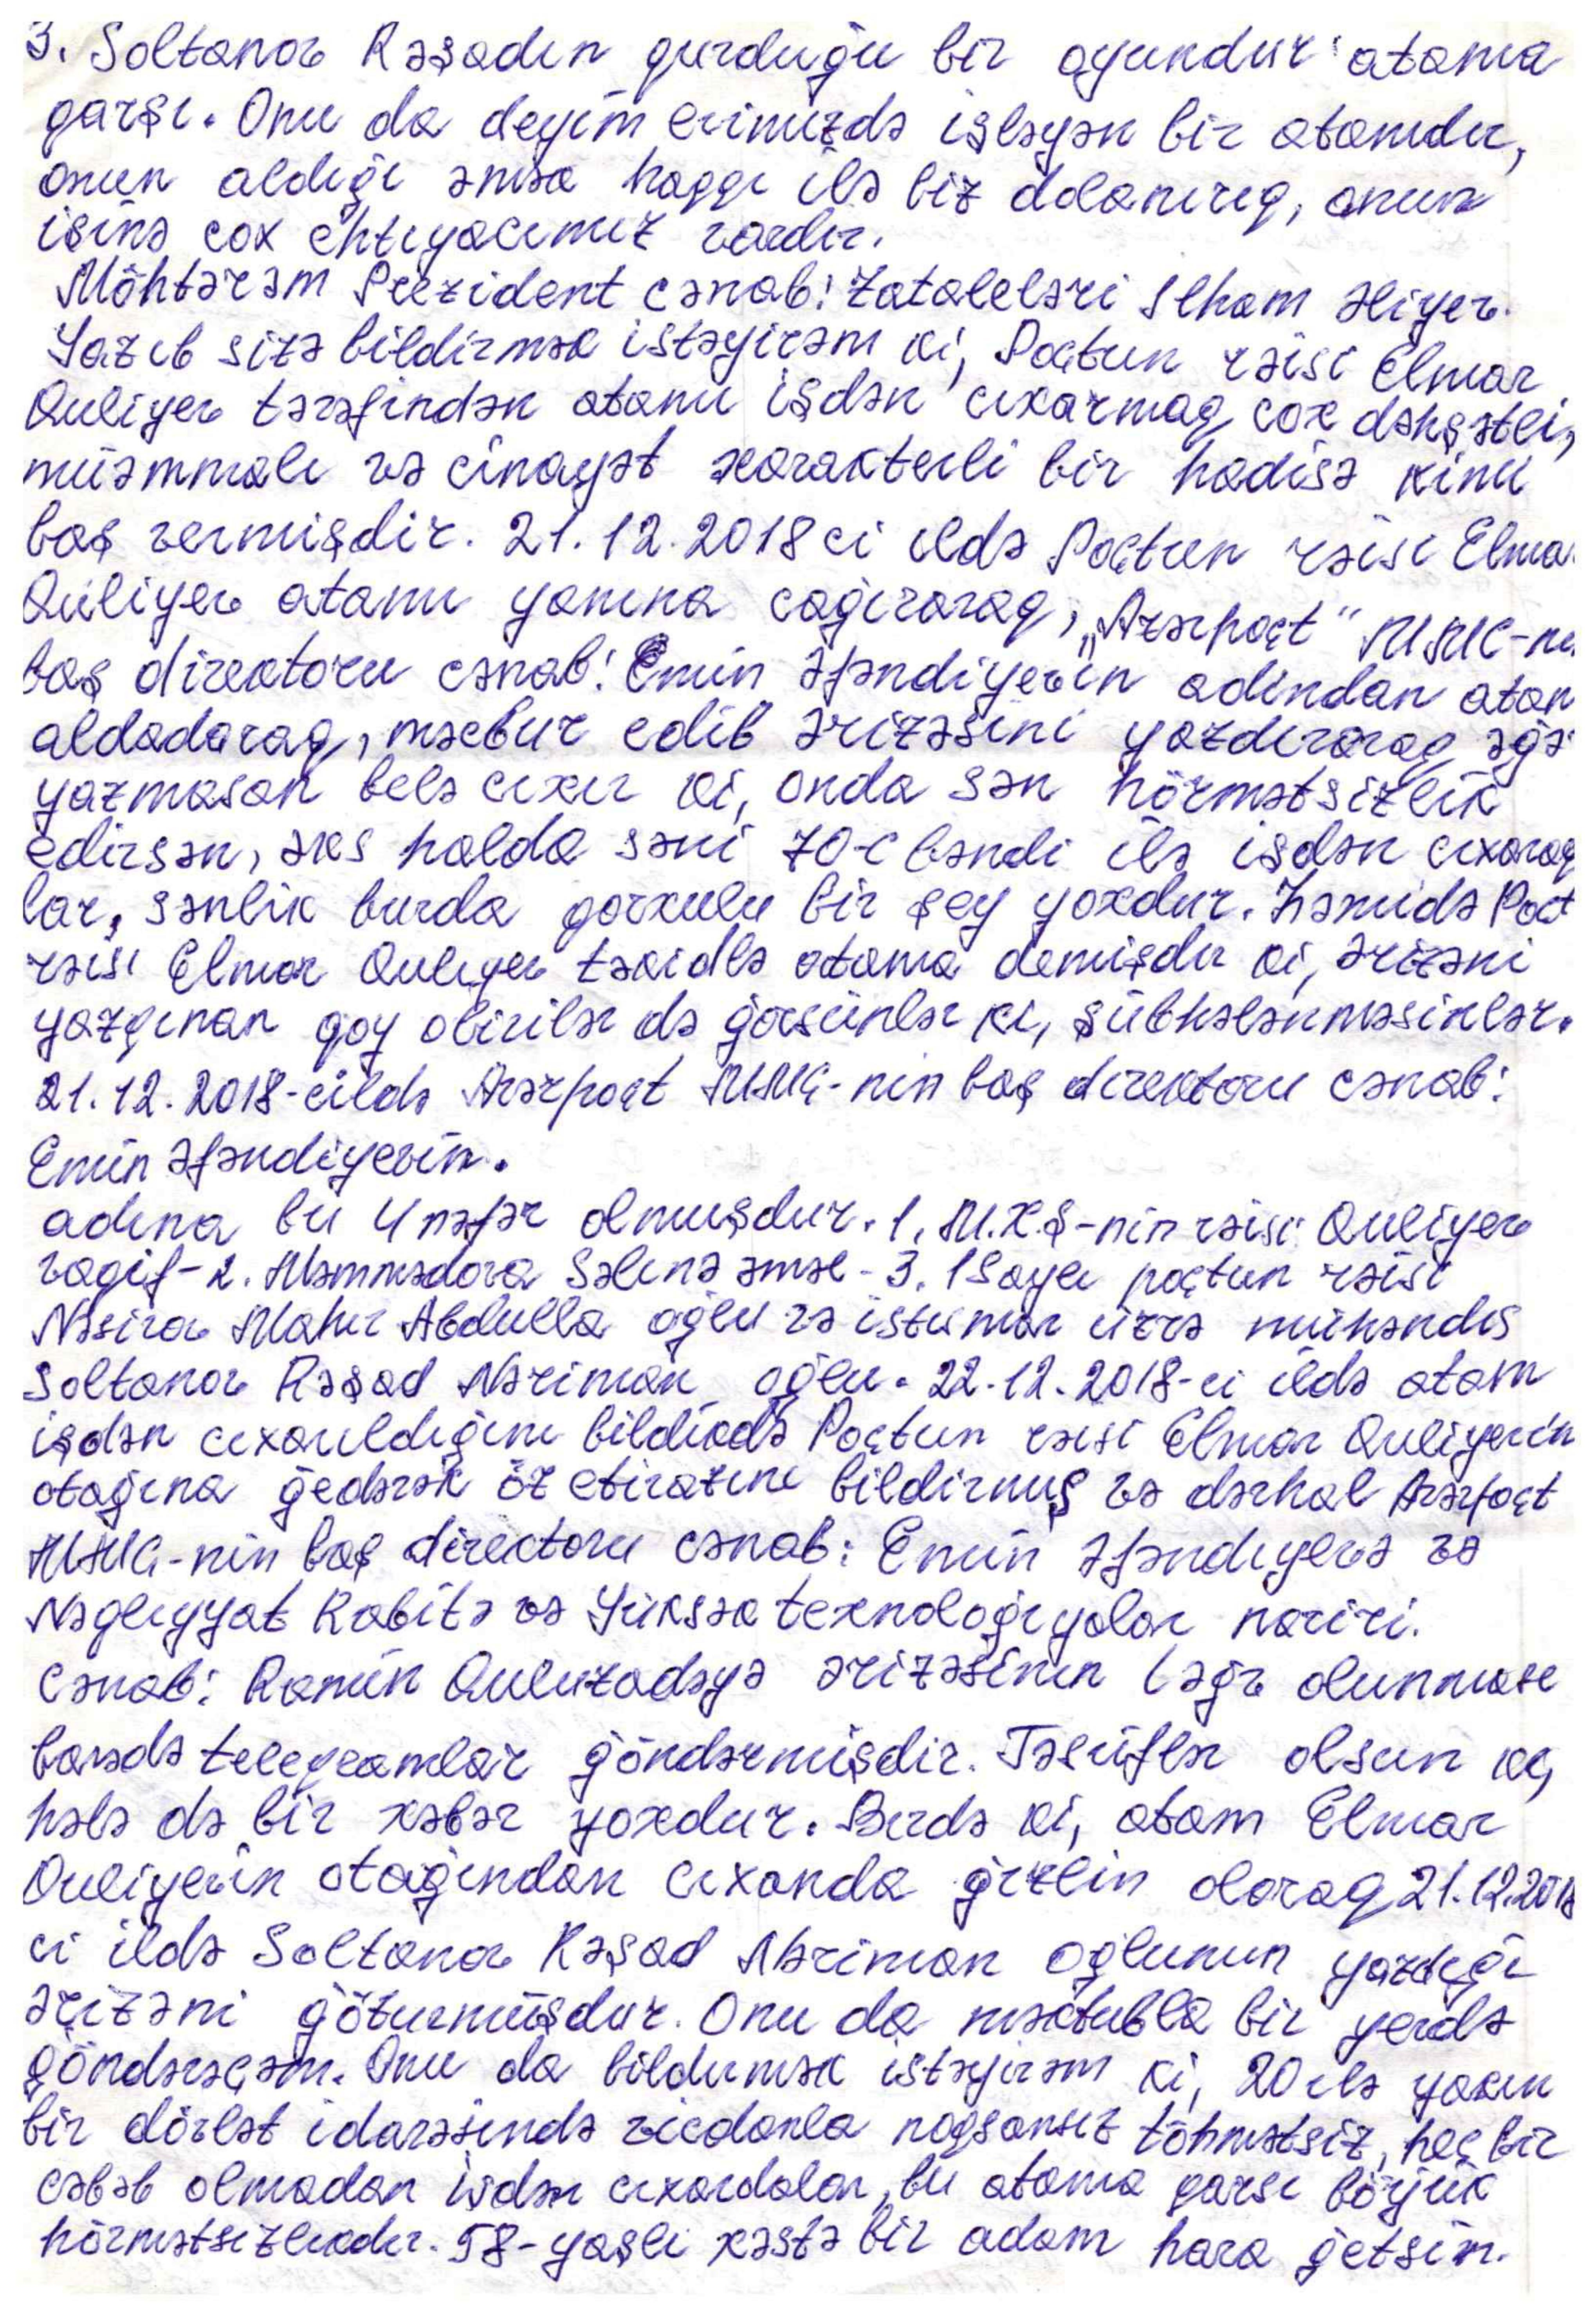 3. Soltanov Rəşadın qurduğu bir oyundur atama
qarşı. Onu da deyim evimizdə işləyən bir atamdır,
onun aldığı əmək haqqı ilə biz dolanırıq, onun
işinə cox ehtiyacımız vardır.
Möhtərəm Prezident cənab! Zataleləri Ilham Əliyev.
Yazıb sizə bildirmək istəyirəm ki, Poçtun rəisi Elmar
Quliyev tərəfindən atamı işdən cıxarmaq cox dəhşətli,
müəmmalı və cinayət xarakterli bir hadisə kimi
baş vermişdir. 21.12.2018 ci ildə Poçtun rəisi Elmar
Quliyev atamı yanına cagıraraq, "Azərpoçt" MMC-ni
baş direktoru cənab! Emin Əfəndiyevin adından atam
aldadaraq, məcbur edib ərizəsini yazdıraraq əgə
yazmasan belə cıxır ki, onda sən hörmətsizlik
edirsən, əks halda səni 70-c bəndi ilə işdən cıxaraq
lar, sənlik burda qorxulu bir şey yoxdur. Həmidə Poçt
rəisi Elmar Quliyev təkidlə atama demişdir ki, ərizəni
yazgınan qoy obirilər də görsünlər ki, şübhələnməsinlər.
21.12.2018-cildə Azərpoçt MMC-nin baş direktoru cənab:
Emin Əfəndiyevin.
adına bu 4 nəfər olmuşdur. 1. M.X.Ş-nin rəisi Quliyev
vagif-2. Məmmədova Səlinə əməl-3. 1 Saylı poçtun rəisi
Nəsirov Mahir Abdulla oğlu və istismar üzrə mühəndis
Soltanov Rəşad Nəriman oğlu. 22.12.2018-ci ildə atam
işdən cıxarıldığını bildikdə Poçtun rəisi Elmar Quliyevin
otağına gedərək öz etirazını bildirmiş və dərhal Azərpoçt
MMC-nin baş direktoru cənab: Emin Əfəndiyevə və
Nəgliyyat Rabitə və Yüksək texnologiyalar naziri.
Cənab: Ramin Quluzadəyə ərizəsinin ləğv olunması
barədə teleqramlar göndərmişdir. Təsüflər olsun ki,
hələ də bir xəbər yoxdur. Birdə ki, atam Elmar
Quliyevin otağından cıxanda gizlin olaraq 21.12.2018
ci ildə Soltanov Rəşad Nəriman oğlunun yazdığı
ərizəni götürmüşdür. Onu da məktubla bir yerdə
göndərəcəm. Onu da bildirmək istəyirəm ki, 20 ilə yaxın
bir dövlət idarəsində vicdanla nogsansız töhmətsiz, heç bir
cəbəb olmadan işdən cıxardalar, bu atama qarşı böyük
hörmətsizlikdir. 58-yaşlı xəstə bir adam hara getsin.